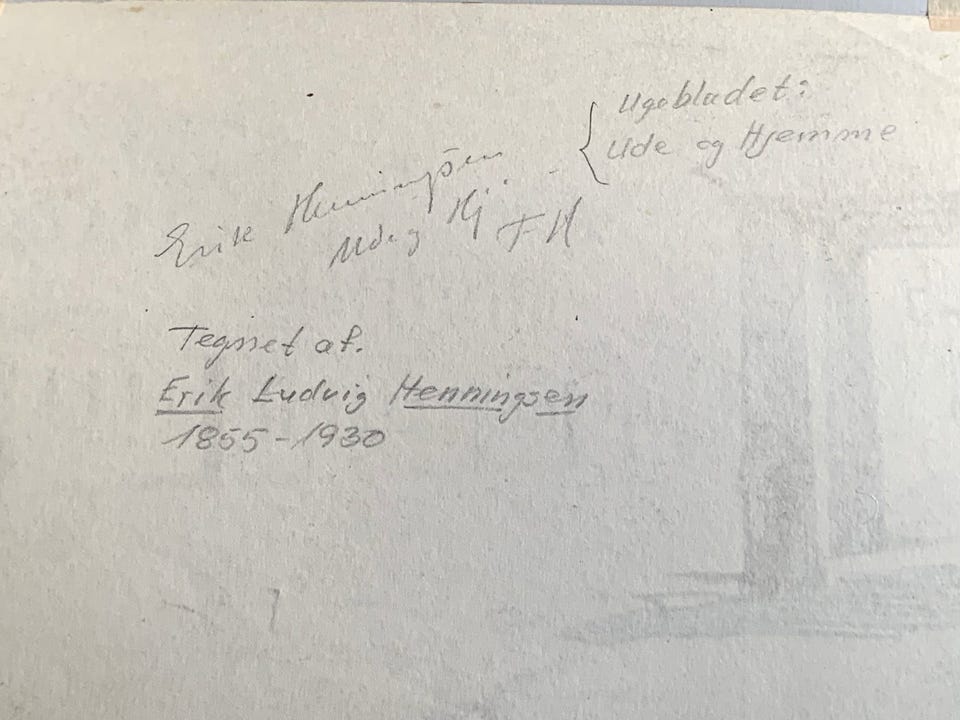 Ugebladet:
Ude og Hjemme
Erik Henningsen
Ude og Hj. FH
Tegnet af.
Erik Ludvig Henningsen
1855-1930